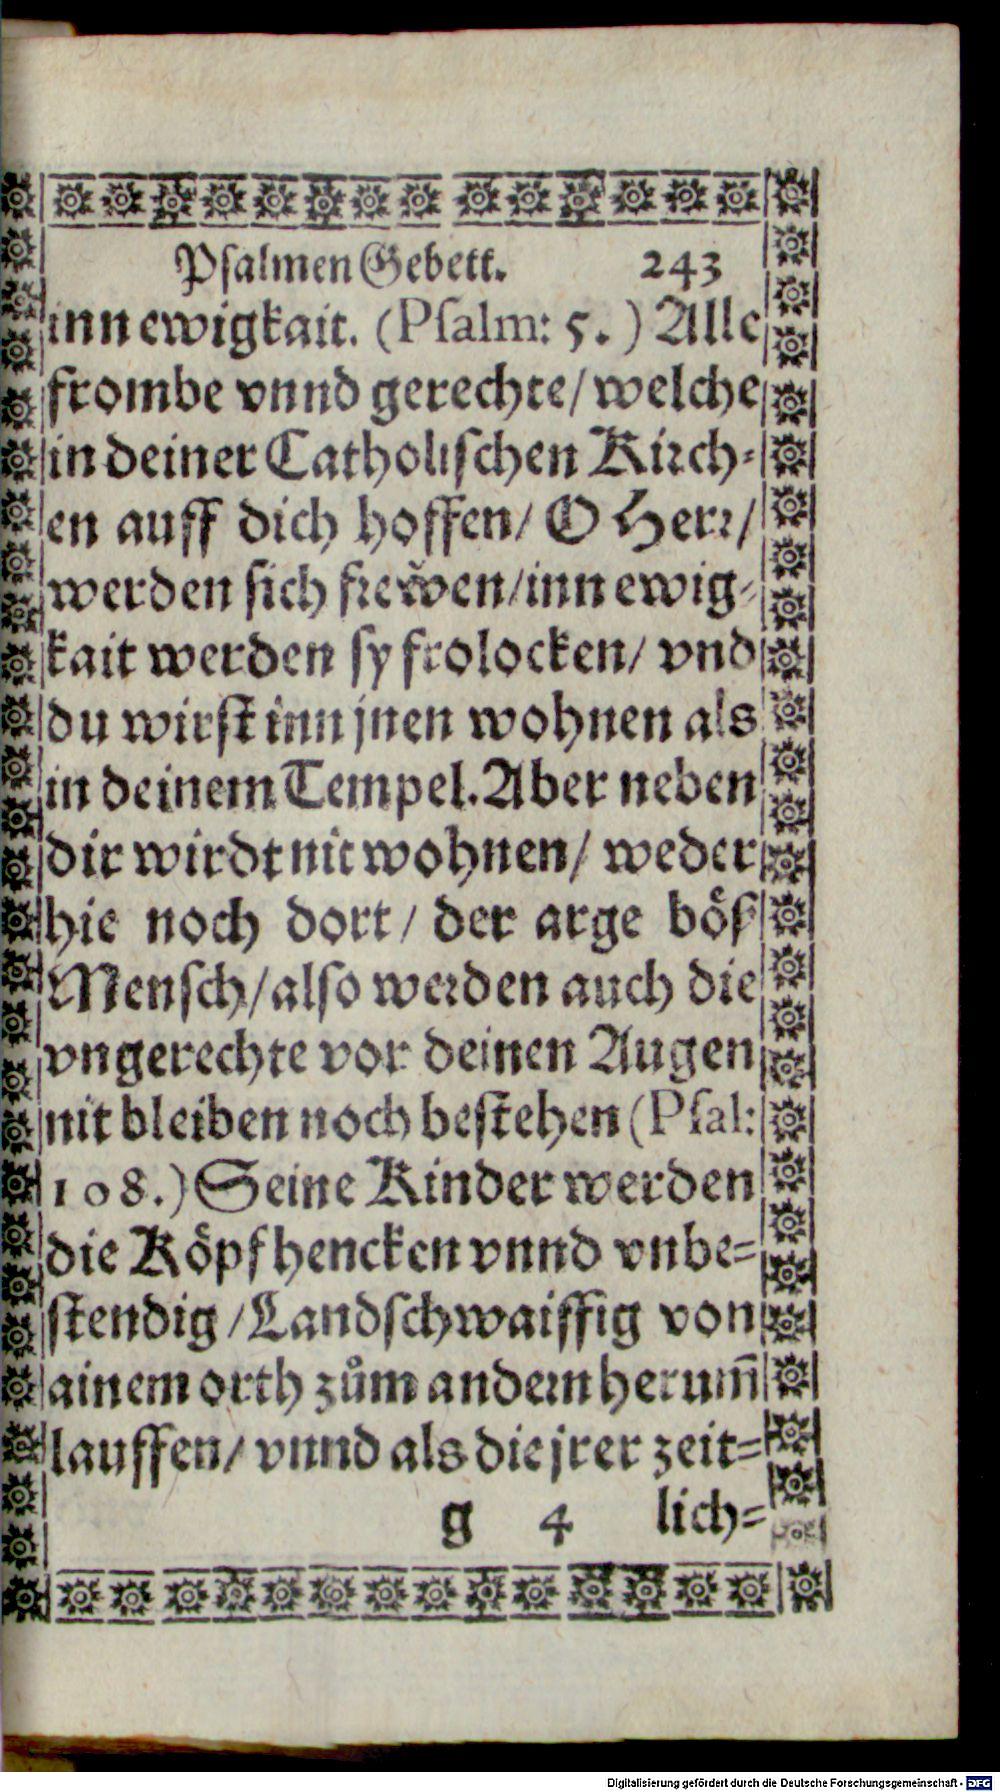 Psalmen Gebett. 243
inn ewigkait. (Psalm: 5.) Alle
frombe vnnd gerechte/ welche
in deiner Catholischen Kirch-
en auff dich hoffen/ O Herr/
werden sich frewͤen/inn ewig-
kait werden sy frolocken/ vnd
du wirst inn jnen wohnen als
in deinem Tempel. Aber neben
dir wirdt nit wohnen/ weder
hie noch dort/ der arge boͤß
Mensch/also werden auch die
vngerechte vor deinen Augen
nit bleiben noch bestehen (Psal:
108.) Seine Kinder werden
die Koͤpf hencken vnnd vnbe-
stendig /Landschwaiffig von
ainem orth zuͦm andern herum̃
lauffen/ vnnd als die jrer zeit-
g 4 lich-
Digitalisierung gefördert durch die Deutsche Forschungsgemeinschaft - DFG